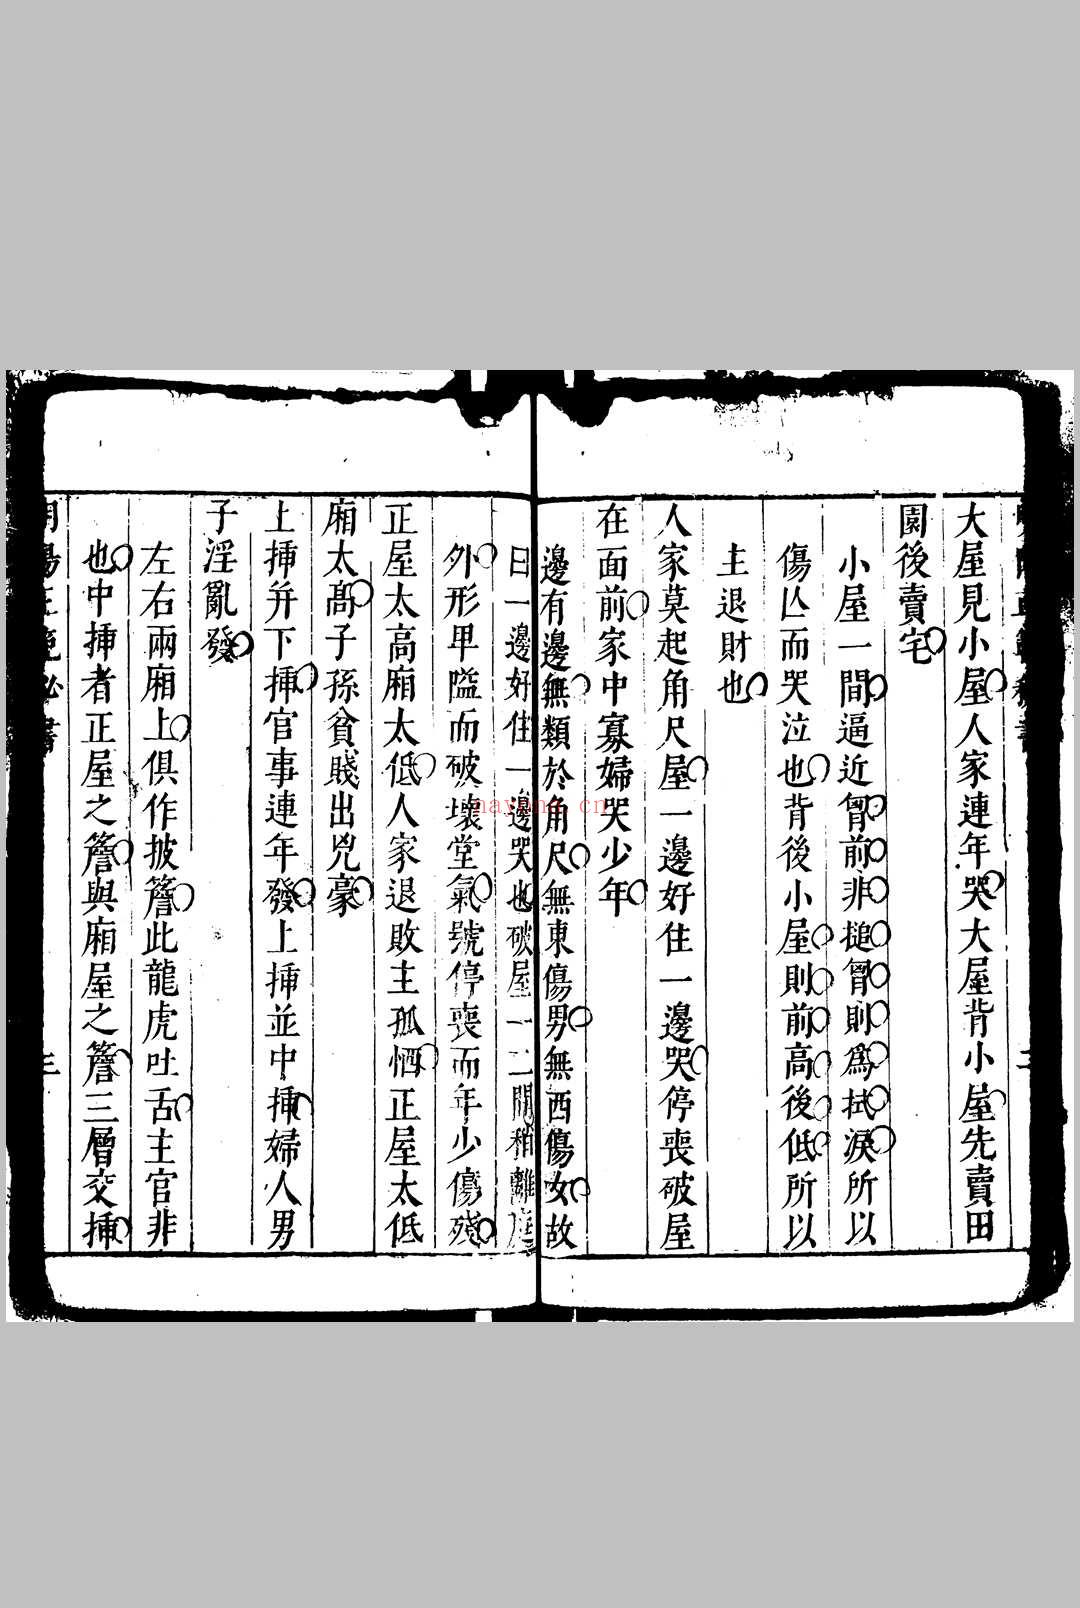 大屋見小屋人家連年哭大屋背小屋先賣田
園後賣宅
小屋一間逼近胷前非搥胷則為拭淚所以
傷亾而哭泣也背後小屋則前高後低所以
主退財也
人家莫起角尺屋一邊好住一邊哭停喪破屋
在面前家中寡婦哭少年
邊有邊無類於角尺無東傷男無西傷女故
曰一邊好住一邊哭也破屋一二間稍離庭
外形卑隘而破壞堂氣號停喪而年少傷殘
正屋太高廂太低人家退敗主孤恓正屋太低
廂太髙子孫貧賤出兇豪
上揷并下揷官事連年發上揷並中揷婦人男
子淫亂發
左右兩廂上俱作披簷此龍虎吐舌主官非
也中揷者正屋之簷與廂屋之簷三層交揷
陽正範必書
三
nayona.cn